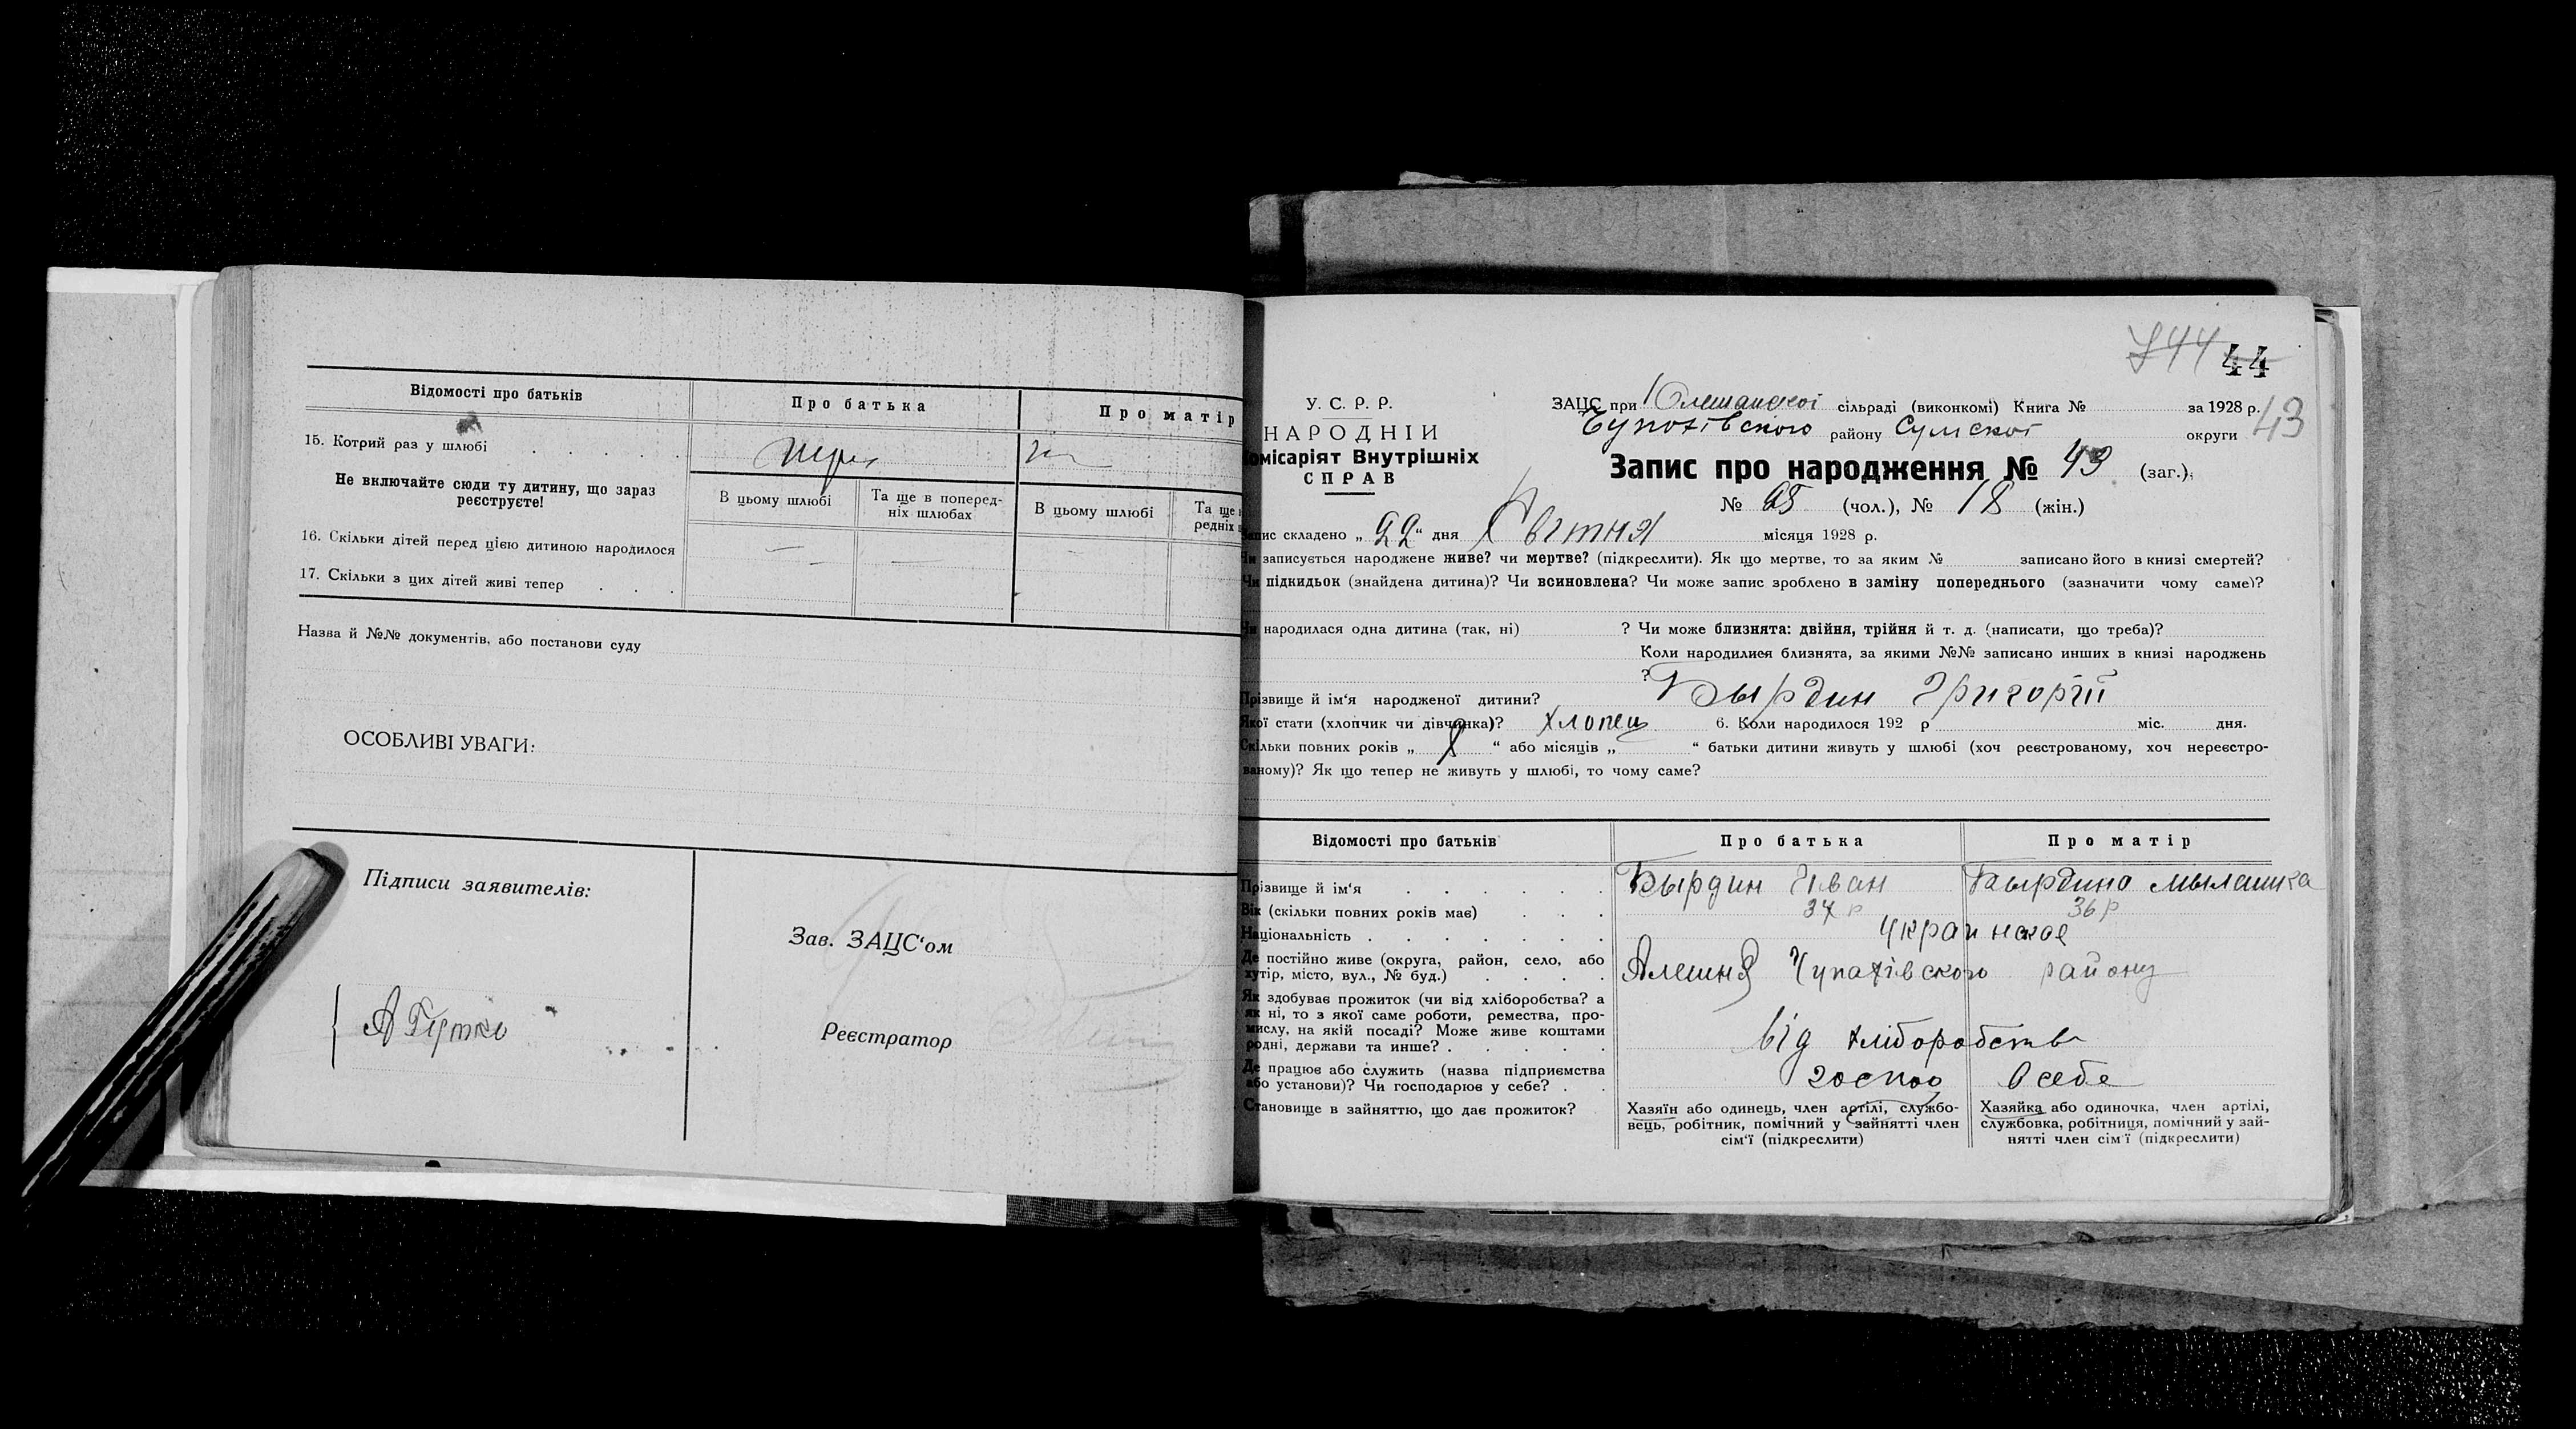 Відомості про батьків
Про батька
Про матір
15. Котрий раз у шлюбі
Не включайте сюди ту дитину, що зараз
реєструєте!
В цьому шлюбі
Та ще в поперед-
ніх шлюбах
В цьому шлюбі
Та ще
редніх
16. Скільки дітей перед цією дитиною народилося
17. Скільки з цих дітей живі тепер
Назва й №№ документів, або постанови суду
ОСОБЛИВІ УВАГИ:
Підписи заявителів:
Зав. ЗАЦС'ом
Реєстратор
44
43
У. С. Р. Р.
НАРОДНІЙ
омісаріят Внутрішніх
СПРАВ
ЗАЦС при сільраді (виконкомі) Книга № за 1928 р.
району Сумскої округи
Запис про народження № 43 (заг.),
№ 25 (чол.), № 18 (жін.)
апис складено „ 22 “ дня місяця 1928 р.
и записується народжене живе? чи мертве? (підкреслити). Як що мертве, то за яким № записано його в книзі смертей?
Чи підкидьок (знайдена дитина)? Чи всиновлена? Чи може запис зроблено в заміну попереднього (зазначити чому саме)?
и народилася одна дитина (так, ні) ? Чи може близнята: двійня, трійня й т. д. (написати, що треба)?
Коли народилися близнята, за якими №№ записано инших в книзі народжень
?
Прізвище й ім'я народженої дитини? Бырдин Григорій
Якої стати (хлопчик чи дівчинка)? хлопец 6. Коли народилося 192 р міс. дня.
Скільки повних років „ “ або місяців „ “ батьки дитини живуть у шлюбі (хоч реєстрованому, хоч нереєстро-
ваному)? Як що тепер не живуть у шлюбі, то чому саме?
Відомості про батьків
Про батька
Про матір
Прізвище й ім'я Бырдин Иван Бырдина Мылашка
Вік (скільки повних років має) 37 р 36 р
Національність Украинское
Де постійно живе (округа, район, село, або
хутір, місто, вул., № буд.) Алешня Чупахівского району
Як здобуває прожиток (чи від хліборобства? а
як ні, то з якої саме роботи, ремества, про-
мислу, на якій посаді? Може живе коштами
родні, держави та инше? від хліборобств
Де працює або служить (назва підприємства
або установи)? Чи господарює у себе? госпо в себе
Становище в зайняттю, що дає прожиток?
Хазяїн або одинець, член артілі, службо-
вець, робітник, помічний у зайнятті член
сім'ї (підкреслити)
Хазяйка або одиночка, член артілі,
службовка, робітниця, помічний у зай-
нятті член сім'ї (підкреслити)